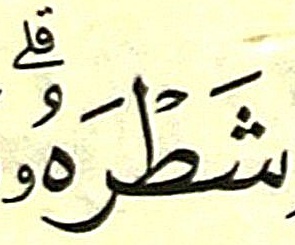 شَطْرَهُۥۗ